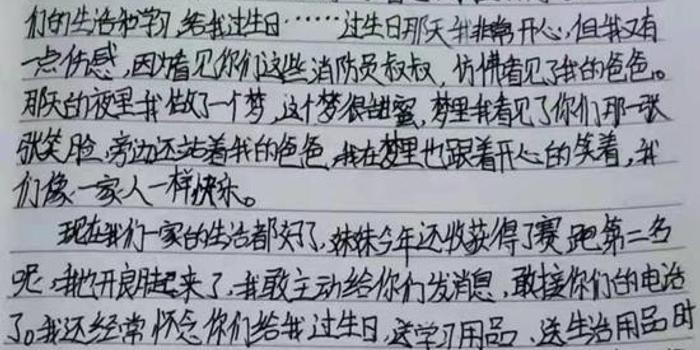 们的生活和学习,给我过生日……过生日那天我非常开心,但我又有
一点伤感,因为看见你们这些消防员叔叔,仿佛看见了我的爸爸。
那天的夜里我做了一个梦,这个梦很甜蜜,梦里我看见了你们那一张
张笑脸,旁边还站着我的爸爸,我在梦里也跟着开心的笑着,我
们像一家人一样快乐。
现在我们一家的生活都好了,妹妹今年还收获得了赛跑第二名
呢,我也开朗起来了,我敢主动给你们发消息,敢接你们的电话
了。我还经常怀念你们给我过生日,送学习用品、送生活用品时